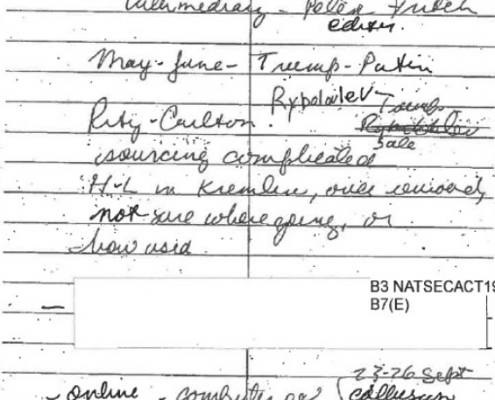 Intermediary - Peter Fritch
editor.
May-June - Trump-Putin
Rybolovlev - Trump
Ritz-Carlton. Sale
sourcing complicated
H-L in Kremlin, once removed,
not sure where going, or
how used
B3 NATSECACT19
B7(E)
23-26 Sept
- online - collusion